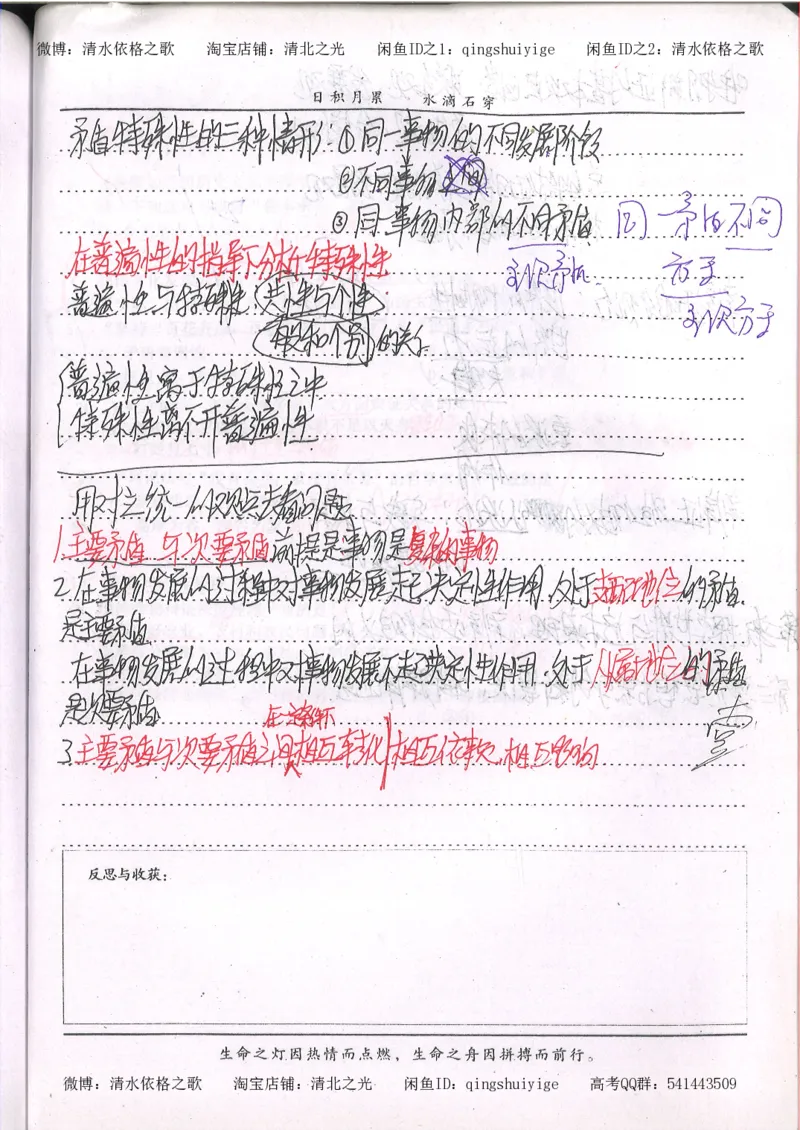 微博：清水依格之歌 淘宝店铺：清北之光 闲鱼ID之1：qingshuiyige 闲鱼ID之2：清水依格之歌
日积月累 水滴石穿
矛盾特殊性的三种情形：①同一事物的不同发展阶段
②不同事物
③同一事物内部的不同矛盾 回 矛盾不同
主次矛盾 方子
主次方子
在普遍性的指导下分析特殊性
普遍性与特殊性 共性与个性
一般和个别 的关系
普遍性寓于特殊性之中
特殊性离不开普遍性
用对立统一的观点去看问题
1.主要矛盾与次要矛盾前提是事物是复杂的事物
2.在事物发展的过程中对事物发展起决定性作用.处于支配地位的矛盾
是主要矛盾
在事物发展的过程中对事物发展不起决定性作用.处于从属地位的矛盾
是次要矛盾
在一定条件下
3.主要矛盾与次要矛盾之间相互转化 相互依赖.相互影响
反思与收获：
生命之灯因热情而点燃，生命之舟因拼搏而前行。
微博：清水依格之歌 淘宝店铺：清北之光 闲鱼ID：qingshuiyige 高考QQ群：541443509